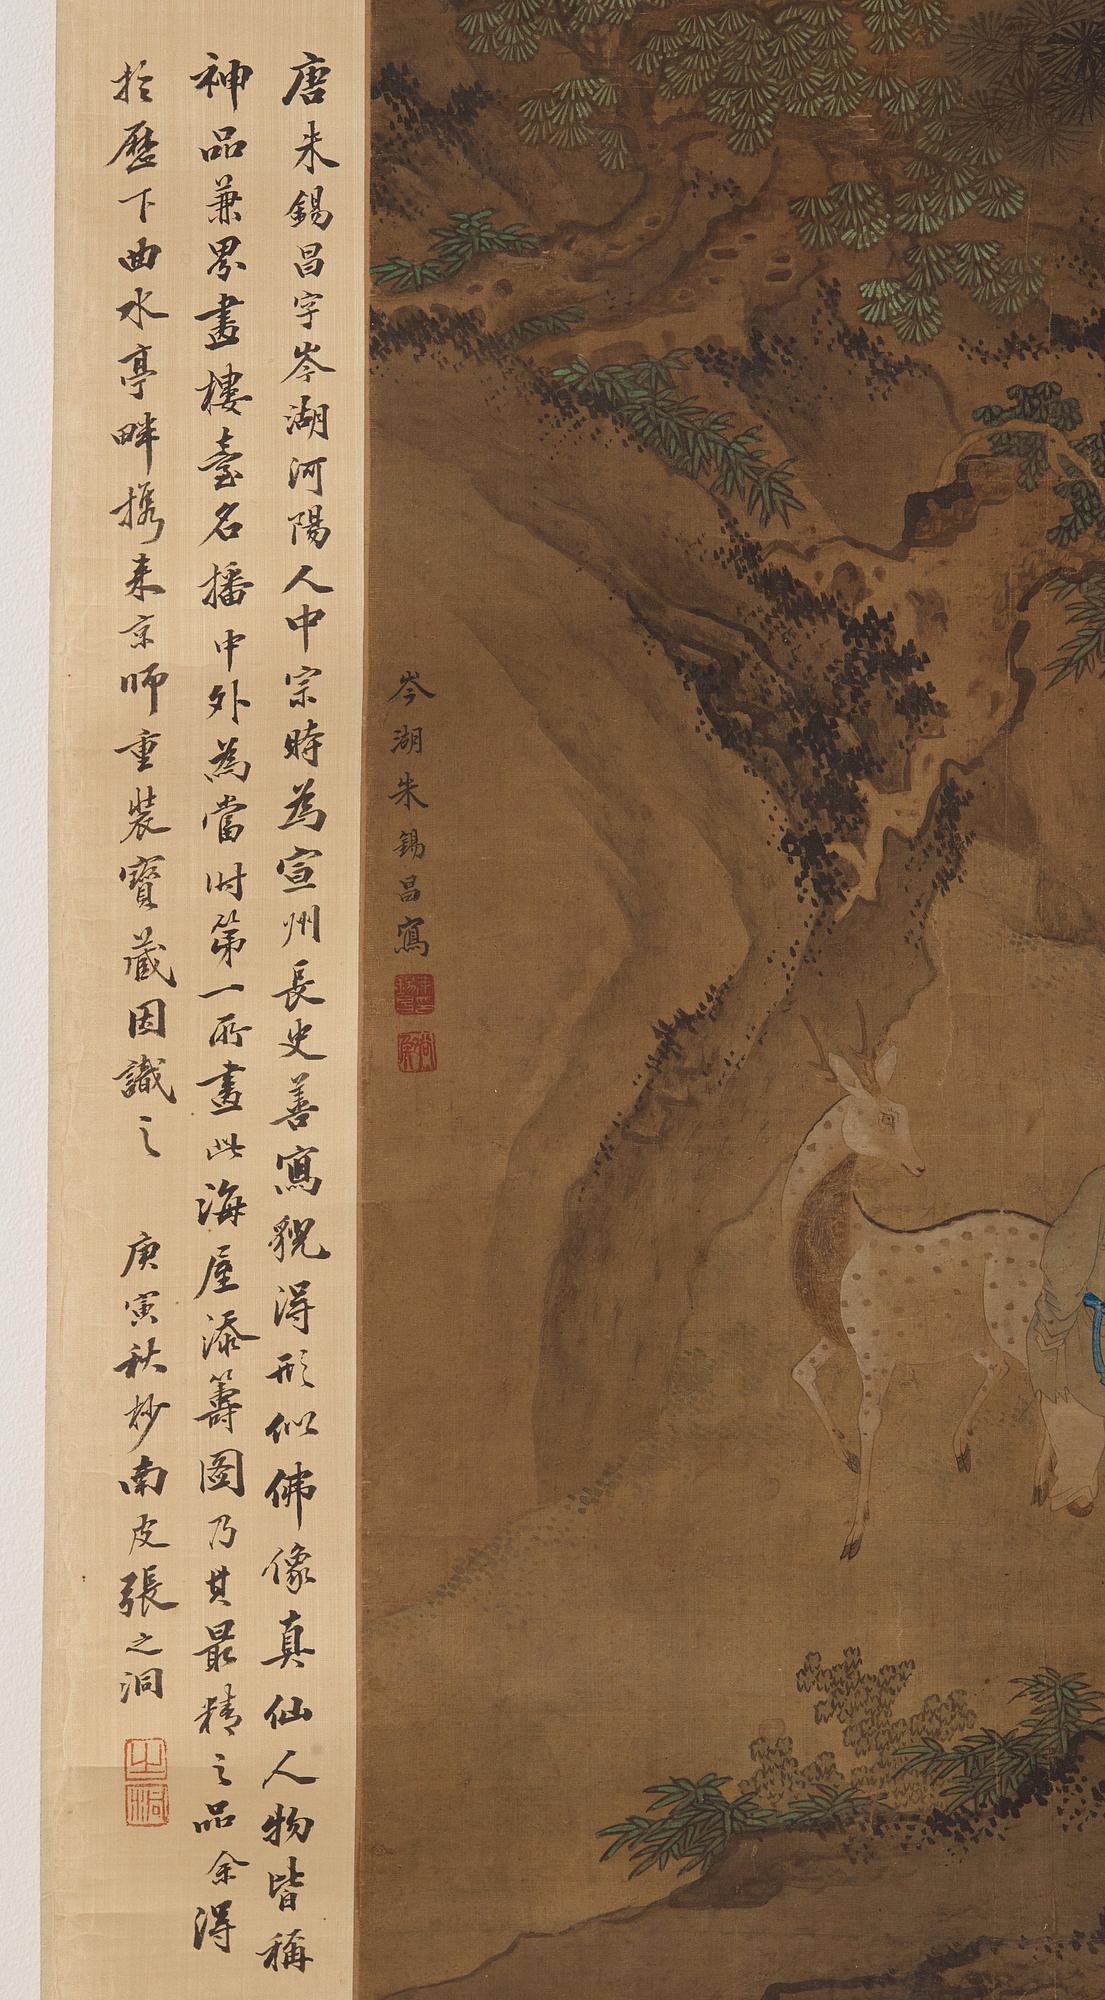 唐朱錫昌字岑湖河陽人中宗時為宣州長史善寫貌得形似佛像真仙人物皆稱
神品兼界畫樓臺名播中外為當时第一所畫此海屋添籌圖乃其最精之品余得
於歷下曲水亭畔携来京師重裝寶藏因識之 庚寅秋杪南皮張之洞
之洞
岑湖朱錫昌寫